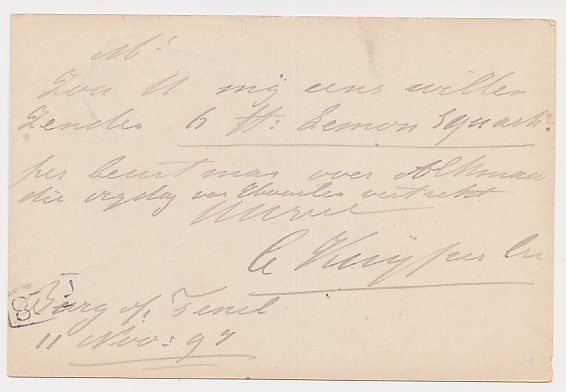 M^r
Zou U mij eens willen
Zenden 6 H^s: Lemon Squash
per beurtman over Alkmaar
die vrijdag van Haarlem vertrekt
C Kuijper
Burg op Texel
11 Nov: 97